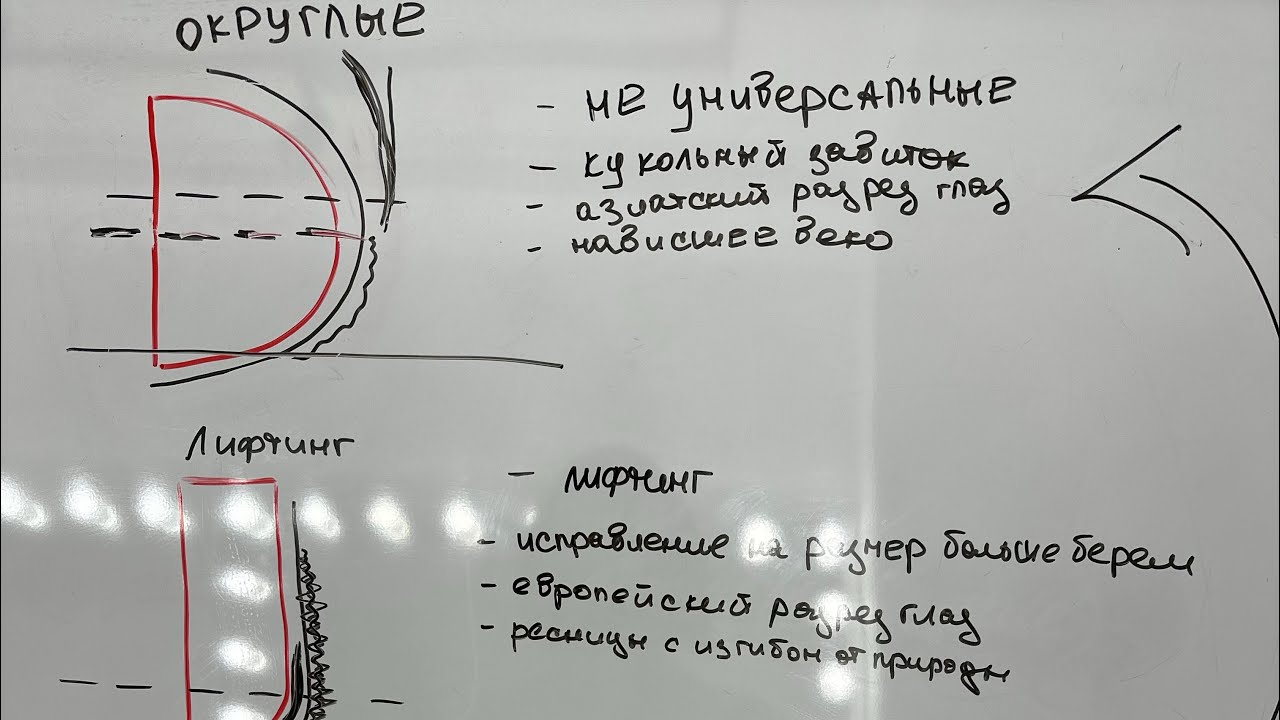 ОКРУГЛЫЕ
- НЕ УНИВЕРСАЛЬНЫЕ
- кукольный завиток
- азиатский разрез глаз
- нависшее веко
Лифтинг
- лифтинг
- исправление на размер больше берем
- европейский разрез глаз
- ресницы с изгибом от природы